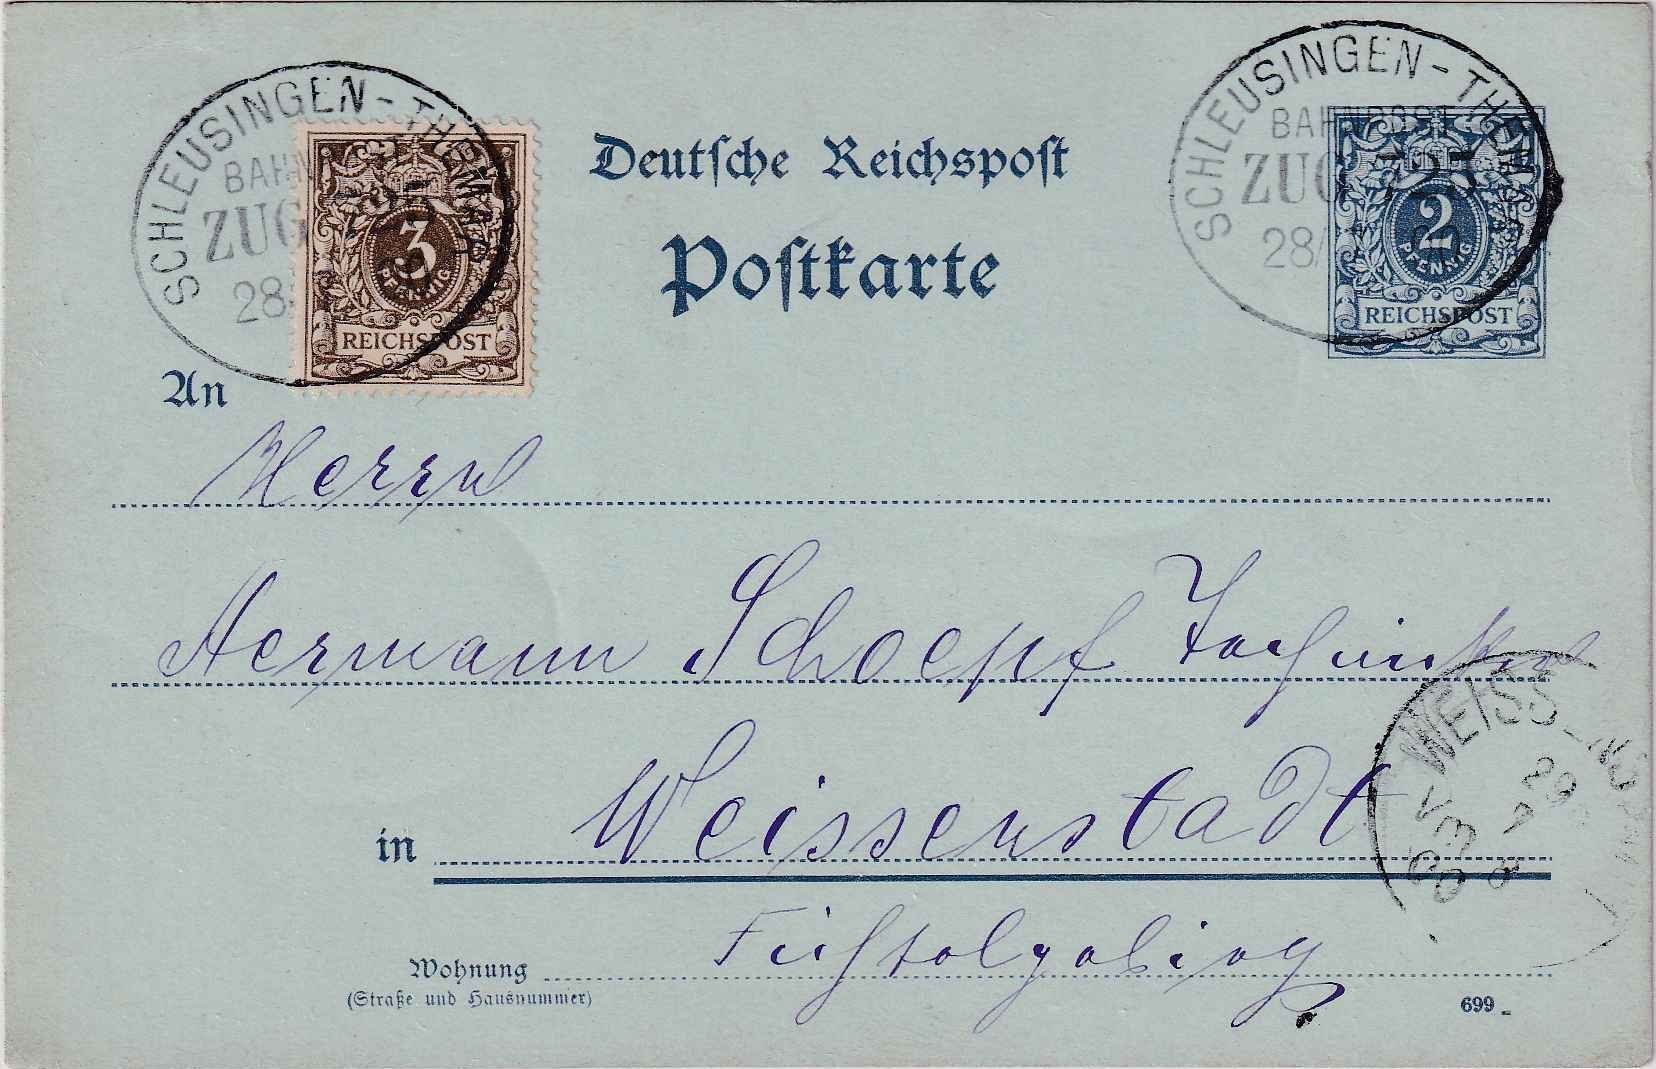 SCHLEUSINGEN - THEMAR
BAHNPOST
ZUG 725
28
3
PFENNIG
REICHSPOST
Deutsche Reichspost
Postkarte
SCHLEUSINGEN - THEMAR
BAHNPOST
ZUG 725
28/
2
PFENNIG
REICHSPOST
An
Herrn
Hermann Schoepf
in Weissenstadt
WEISSENSTADT
29
VM
Wohnung Fichtelgebirg
(Straße und Hausnummer)
699